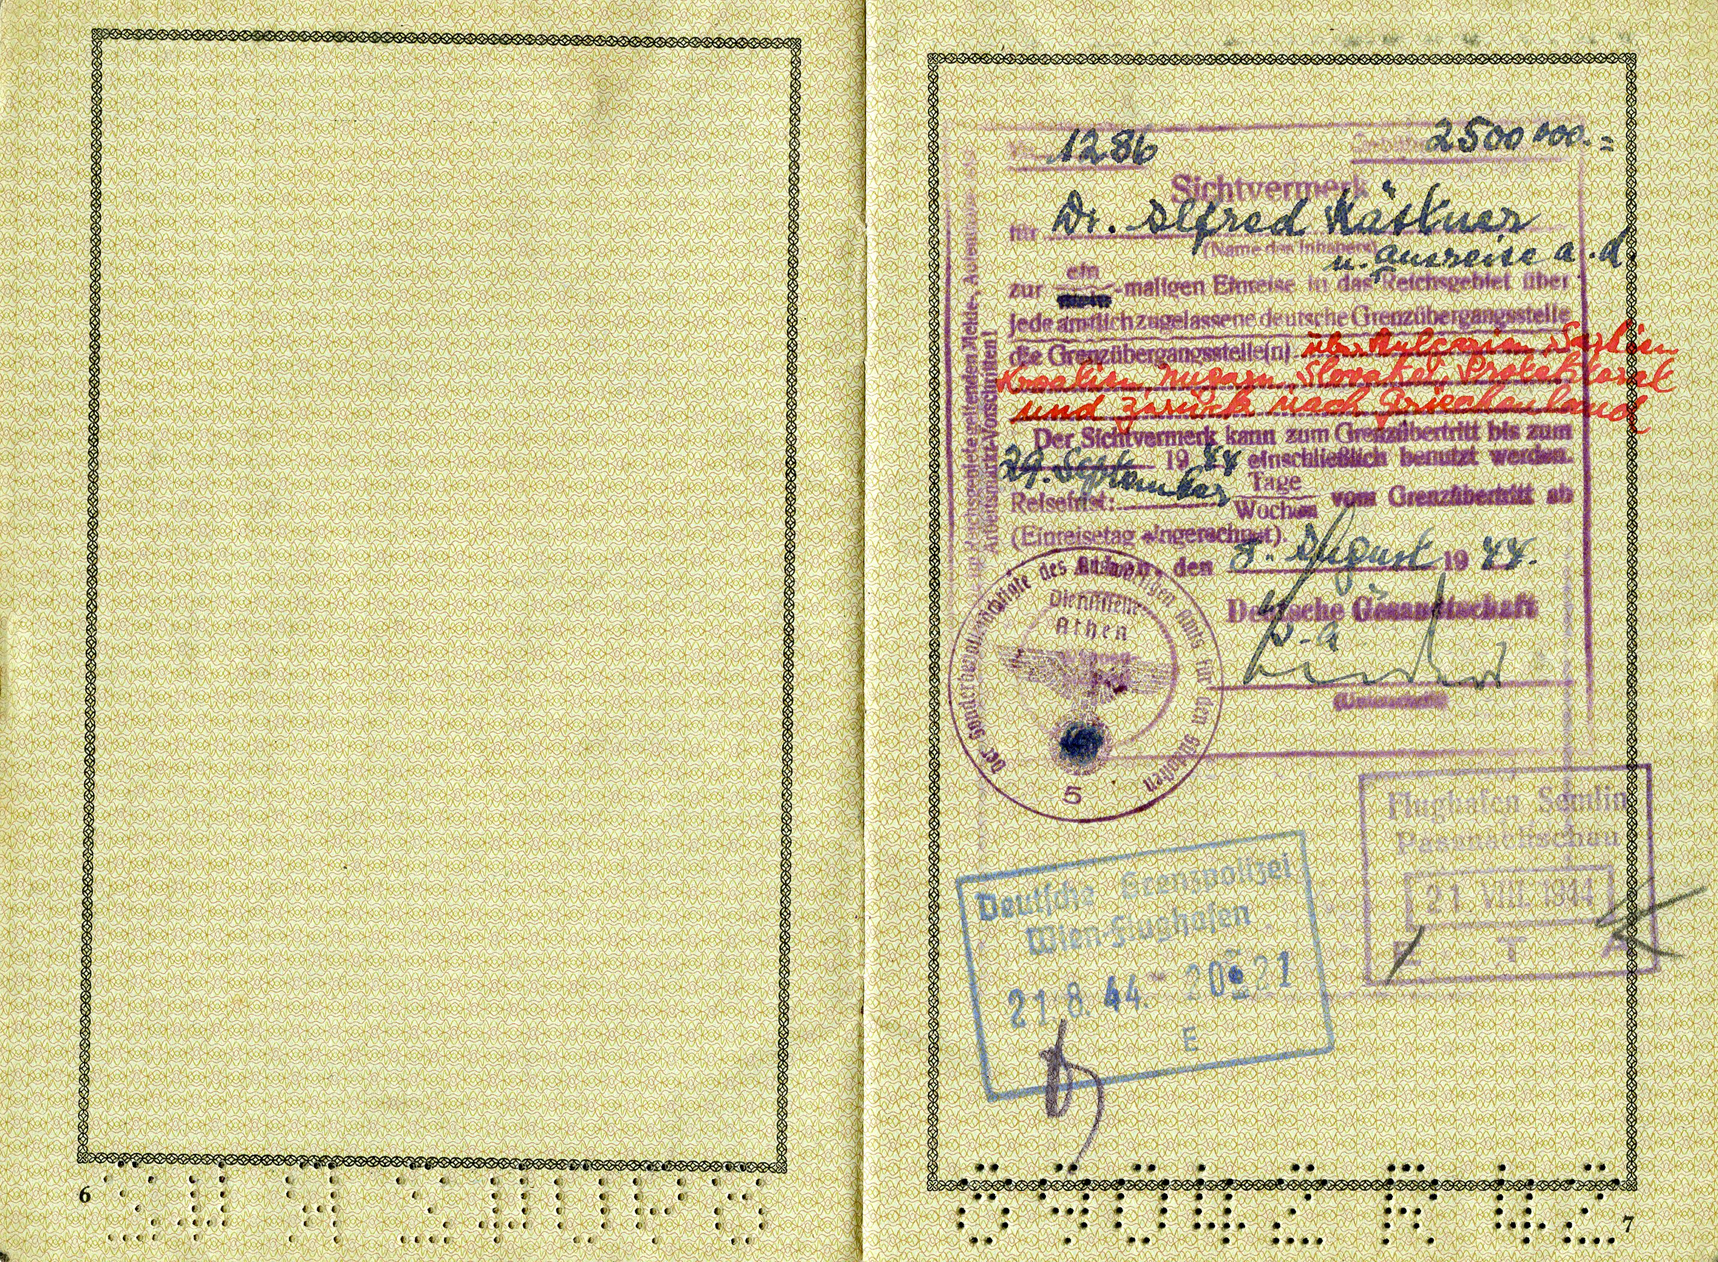 1286 2500 000.=
Sichtvermerk
für Dr. Alfred Kästner
(Name des Inhabers)
u. Ausreise a. d.
ein
zur -maligen Einreise in das Reichsgebiet über
jede amtlich zugelassene deutsche Grenzübergangsstelle
die Grenzübergangsstelle(n) über Bulgarien, Serbien
Kroatien, Ungarn, Slowakei, Protektorat
und zurück nach Griechenland
Der Sichtvermerk kann zum Grenzübertritt bis zum
29. September 19 44 einschließlich benutzt werden.
Reisefrist: Tage
Wochen vom Grenzübertritt ab
(Einreisetag eingerechnet).
Athen, den 8. August 19 44.
Deutsche Gesandtschaft
(Unterschrift)
im Reichsgebiete geltenden Melde-, Aufenthalts- und
Arbeitsmarkt-Vorschriften!
Der Sonderbevollmächtigte des Auswärtigen Amts für den Südosten
Dienststelle
Athen
5
Flughafen Semlin
Passnachschau
21. VIII. 1944
E T A
Deutsche Grenzpolizei
Wien-Flughafen
21.8.44.- 20 21
E
6
09042 A 42
7